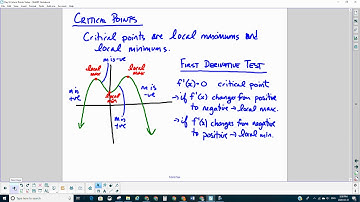 CRITICAL POINTS
Critical points are local maximums and
local minimums.
m is -ve
local
max
local
max
m is
+ve
local
min
m is
-ve
m is
+ve
FIRST DERIVATIVE TEST
f'(x)=0 critical point
→ if f'(x) changes from positive
to negative → local max.
→ if f'(x) changes from negative
to positive → local min.